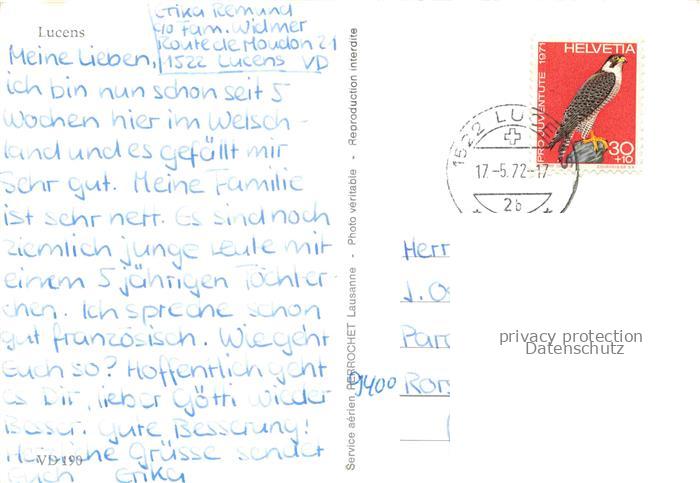 Lucens
Erika Remund
c/o Fam. Widmer
Route de Moudon 21
1522 Lucens VD
Meine Lieben,
ich bin nun schon seit 5
Wochen hier im Welsch-
land und es gefällt mir
Sehr gut. Meine Familie
ist sehr nett. Es sind noch
ziemlich junge Leute mit
einem 5 jährigen Töchter-
chen. Ich spreche schon
gut französisch. Wie geht
Euch so? Hoffentlich geht
es Dir, lieber Götti wieder
Besser. Gute Besserung!
Herzliche Grüsse sendet
Euch Erika
VD 190
Service aérien PERROCHET Lausanne - Photo véritable - Reproduction interdite
PRO JUVENTUTE 1971
HELVETIA
30
+10
1522 LUCENS
17-5.72-17
2b
Herr
J. O
Parr
9400 Rors
privacy protection
Datenschutz